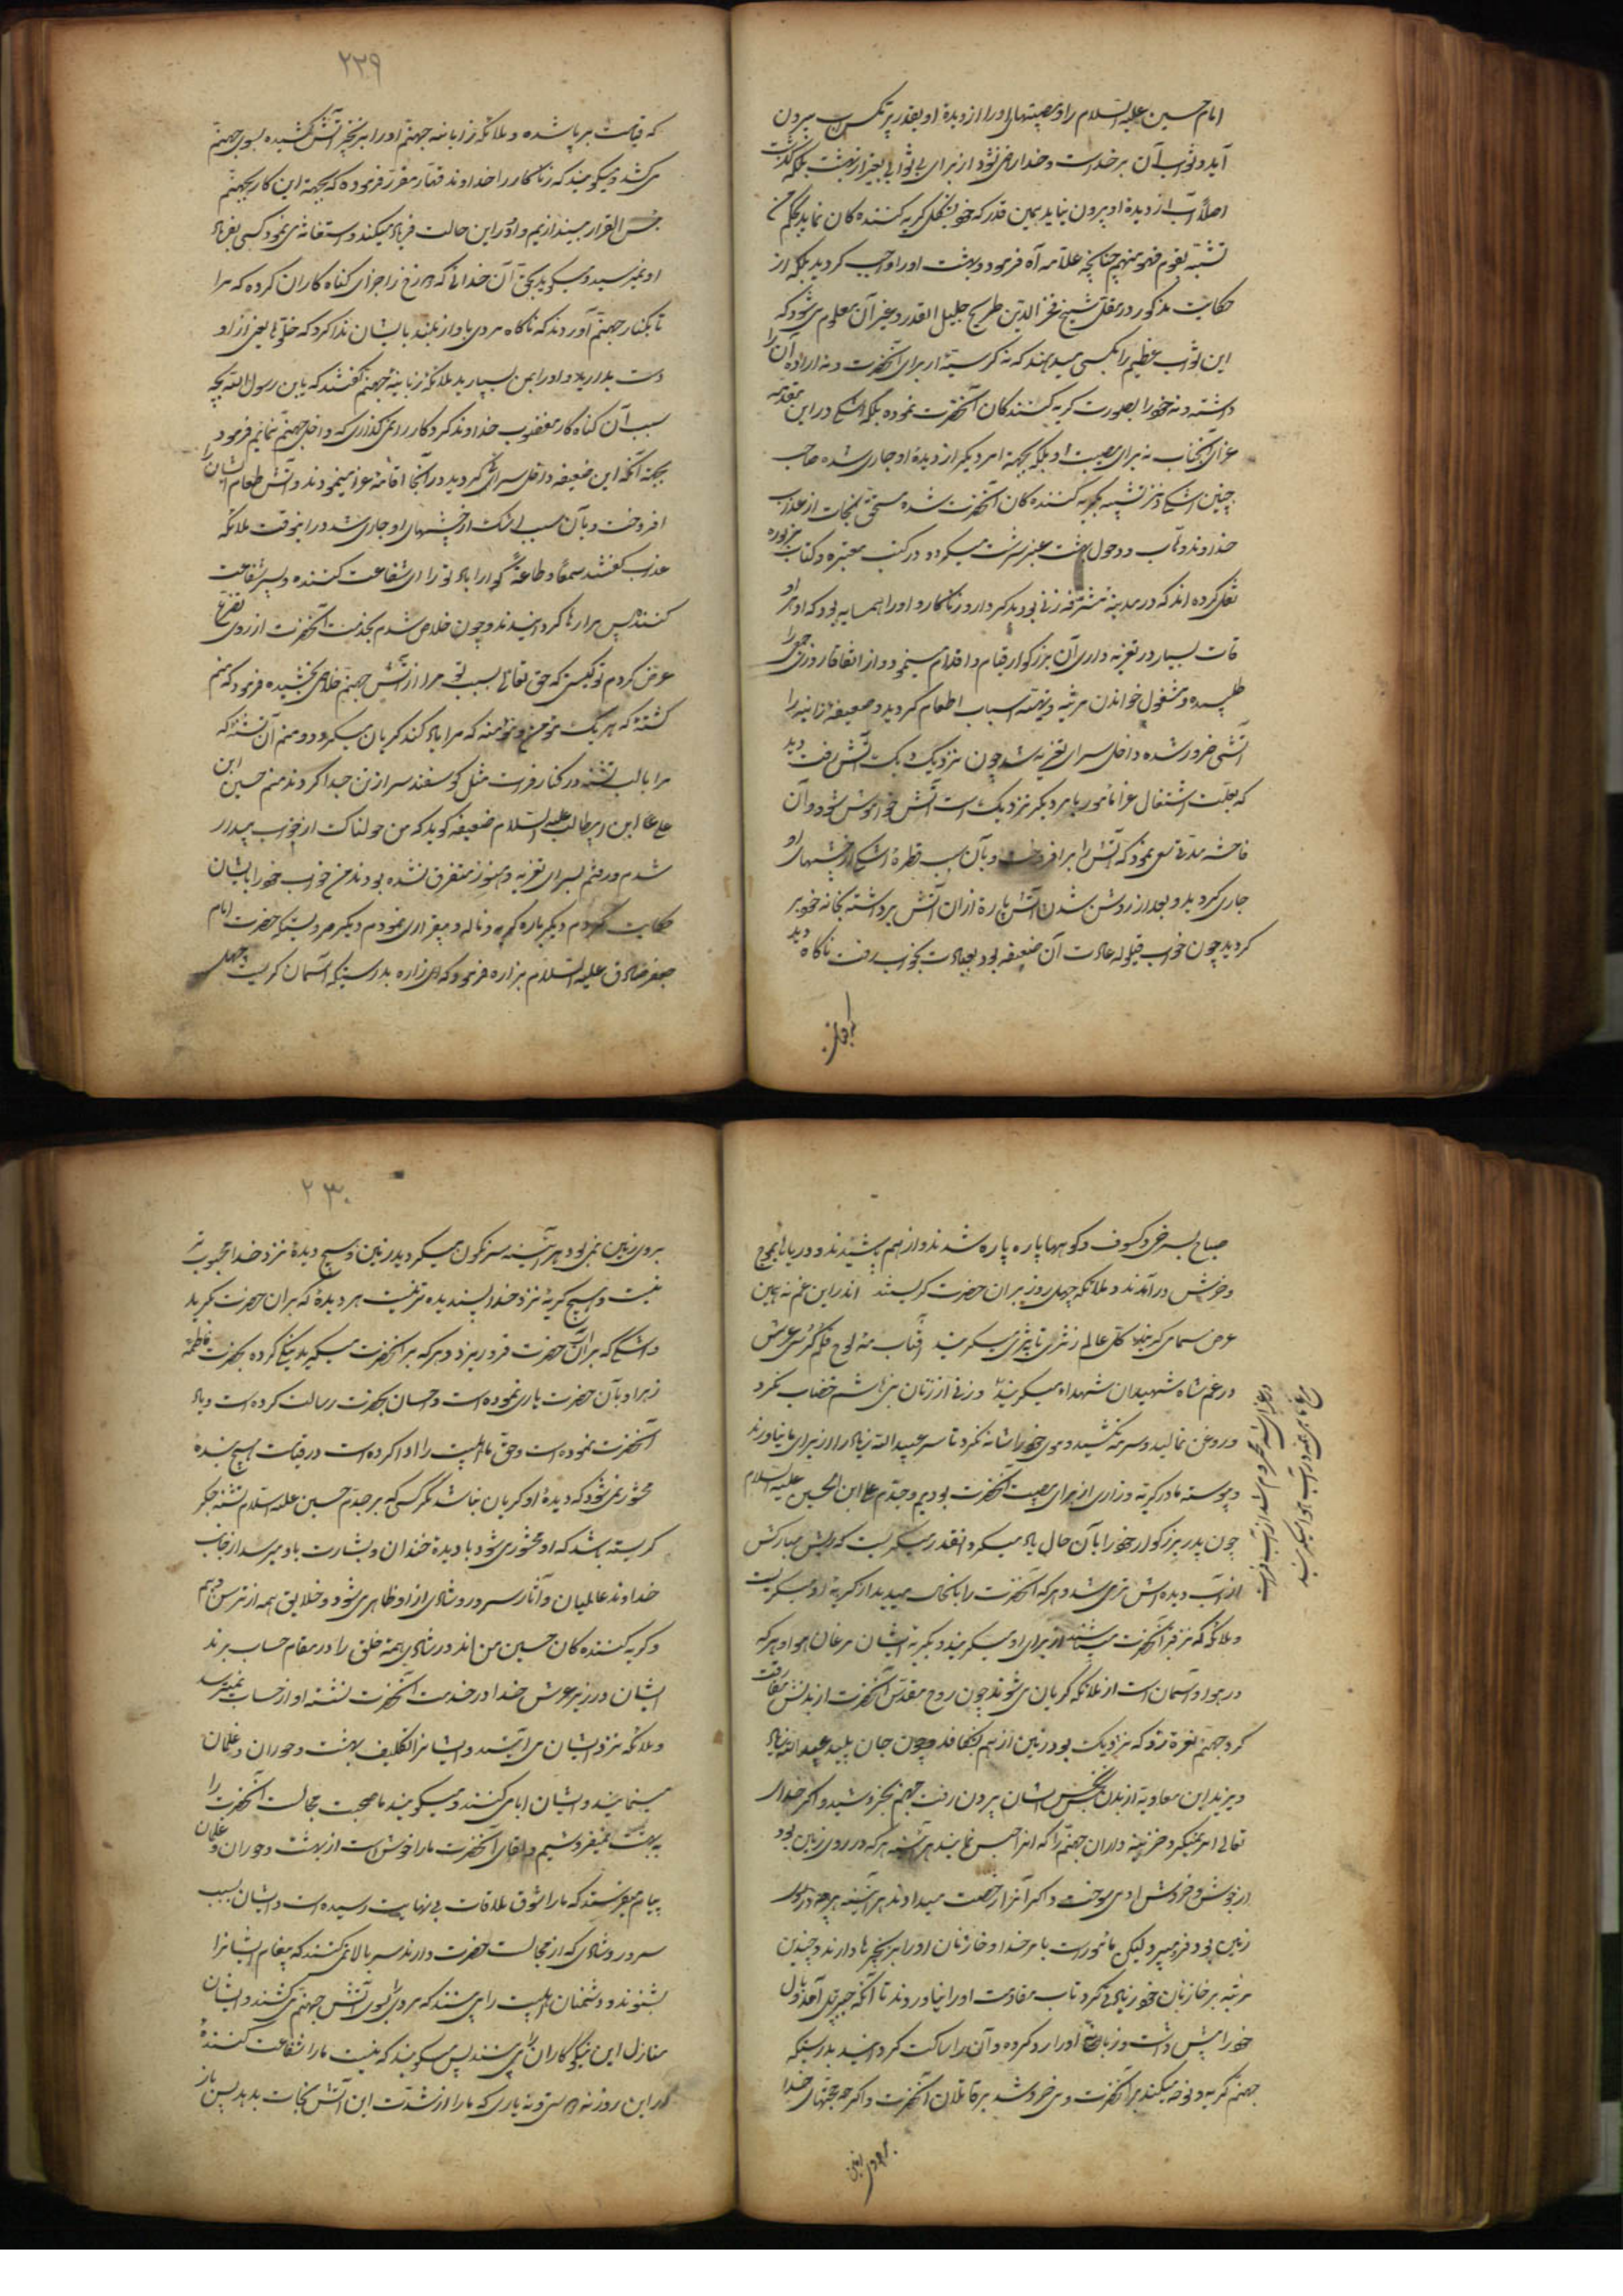 امام حسین علیه السلام را و مصیبتهای او را از دیده او بقدر پر مکس آب بیرون
آید و ثواب آن بر خداست و خدا راضی نشود از برای او ثوابی بغیر از بهشت بلکه گذشت
اصلاً آب از دیده او بیرون نیاید همین قدر که خود بشکل گریه کننده کان نماید بحکم من
تشبّه بقوم فهو منهم چنانچه علامه آه فرمود و بهشت او را واجب کردید بلکه از
حکایت مذکور در مقتل شیخ فخر الدین طریح جلیل القدر و غیر آن معلوم میشود که
این ثواب عظیم را بکسی میدهند که نه گریسته از برای آنحضرت و نه اراده آن را
داشته و نه خود را بصورت گریه کنندگان آنحضرت نموده بلکه اشکی در این مقدمه
عزای آنجناب نه برای مصیبت او بلکه بجهة امر دیگر از دیدهٔ او جاری شده صاحب
چنین اشکی نیز تشبیه بگریه کننده کان آنحضرت شده مستحق نجات از عذاب
خداوند وهّاب و دخول بهشت عنبر سرشت میگردد و در کتب معتبره و کتاب مزبوره
نقل کرده اند که در مدینه مشرّفه زنی بود بدکردار و زناکار و او را همسایه بود که او هر
قات بسیار در تعزیه داری آن بزرگوار قیام و اقدام مینمود و از اتفاقا روزی جمعی را
طلبیده و مشغول خواندن مرثیه و تهیّه اسباب اطعام کردید و ضعیفه زانیه را
آتشی ضرور شده داخل سرای تعزیه شد چون نزدیک دیک آتش رفت دید
که بعلت اشتغال عزا مامور بامر دیکر نزدیک است آتش خواموش شود و آن
فاحشه مدتی سعی نمود که آتش را برافروخت و بآن سبب قطرهٔ اشکی از چشمهای او
جاری کردید و بعد از روشن شدن آتش پارهٔ از آن آتش برداشته بخانه خود بر
کردید چون خواب قیلوله عادت آن ضعیفه بود بعادت بخواب رفت ناکاه دید
که قیامت
۲۲۹
که قیامت برپا شده و ملائکه زبانیه جهنم او را بزنجیر آتش کشیده بسوی جهنم
می کشند و میکویند که زناکار را خداوند قهار مقرّر فرموده که بجهة این کار بجهنم
بئس القرار بیندازیم و او در این حالت فریاد میکند و استغاثه می نمود کسی بفریاد
او نمیرسید و میکوید بحق آن خدائی که دوزخ را جزای کناه کاران کرده که مرا
تا بکنار جهنم آوردند که ناکاه مردی باواز بلند بایشان ندا کرد که خلّوها یعنی از او
دست بدارید و او را بمن بسپارید ملائکه زبانیهٔ جهنم گفتند که یابن رسول الله بچه
سبب آن کناه کار مغضوب خداوند کردکار را نمی گذاری که داخل جهنم نمائیم فرمود
بجهة آنکه این ضعیفه داخل سرائی کردید و در آنجا اقامه عزا مینمودند و آتش طعام ایشان را
افروخت و بآن سبب اشک از چشمهای او جاری شد در انوقت ملائکه
عذاب گفتند سمعاً و طاعةً کوارا باد تو را ای شفاعت کننده و پسر شفاعت
کننده پس مرا رها کردانیدند و چون خلاص شدم بخدمت آنحضرت از روی تضرع
عرض کردم تو کیستی که حق تعالی بسبب تو مرا از آتش جهنم خلاصی بخشیده فرمود که منم
کشتهٔ که هر یک مؤمن و مؤمنه که مرا یاد کند کریان میکردد و منم آن تشنه که
مرا با لب تشنه در کنار فرات مثل کوسفند سر از تن جدا کردند منم حسین ابن
علی ابن ابیطالب علیه السلام ضعیفه کوید که من هولناک از خواب بیدار
شدم و رفتم بسرای تعزیه و هنوز متفرق نشده بودند من خواب خود را بایشان
حکایت کردم دیگر باره گریه و ناله و بیقراری نمودم و دیکر مرویستکه حضرت امام
جعفر صادق علیه السلام بزاره فرمود که ای زراره بدرستیکه آسمان کریست چهل
صباح بسرخی و کسوف و کوهها پاره پاره شدند و از هم پاشیدند و دریاها بموج
و خروش درآمدند و ملائکه چهل روز بر آن حضرت گریستند اندر این غم نه همین
عرض سما می گریند کل عالم ز ثری تا بثریّا میگریند آفتاب مه و لوح قلم کرسی عرش
در غم شاه شهیدان شهدا میگریند و زنی از زنان بنی هاشم خضاب نکرد
و روغن نمالید و سرمه نکشید و موی خود را شانه نکرد تا سر عبید الله زیاد را از برای ما نیاوردند
و پیوسته ما در گریه و زاری از برای مصیبت آنحضرت بودیم و جدّم علی ابن الحسین علیه السلام
چون پدر بزرگوار خود را با آن حال یاد میکرد انقدر میکریست که ریش مبارکش
از آب دیده اش تر می شد و هر که آنحضرت را بانحال میدید از گریه او میکریست
و ملائکه که نزد قبر آنحضرت میباشند از برای او میگریند و بگریه ایشان مرغان هوا و هر که
در هوا و آسمان است از ملائکه گریان میشوند چون روح مقدّس آنحضرت از بدنش مفارقت
کرد جهنم نعره زد که نزدیک بود زمین از هم بشکافد و چون جان پلید عبید الله زیاد
و یزید ابن معاویه از بدن نجس ایشان بیرون رفت جهنم بخروشید و اگر خدای
تعالی امر نمیکرد خزینه داران جهنم را که او را حبس نمایند هر آینه هر که در روی زمین بود
از جوش و خروش او می سوخت و اکر آنرا رخصت میدادند هر آینه هر چه در روی
زمین بود فرو میبرد و لیکن مامور است بامر خدا و خازنان او را بزنجیرها دارند و چندین
مرتبه بر خازنان خود زیادتی کرد تاب مقاومت او را نیاوردند تا آنکه جبرئیل آمد و بال
خود را پیش داشت و زبانهٔ او را رد کرده و آنرا ساکت کردانید بدرستیکه
جهنم گریه و نوحه میکند بر آنحضرت و می خروشد بر قاتلان آنحضرت و اکر حجتهای خدا
بروی زمین
در عزای شه محروم شد از آب فرات
مرغ و ماهی همه در آب و هوا میگریند
۲۳۰
بروی زمین نمی بود هر آینه سرنکون میکردید زمین و هیچ دیدهٔ نزد خدا محبوب تر
نیست و هیچ گریهٔ نزد خدا پسندیده تر نیست از هر دیدهٔ که بر آن حضرت بگرید
و اشکی که بر آن حضرت فرو ریزد و هر که بر آنحضرت میگرید نیکی کرده بحضرت فاطمه
زهرا و بآن حضرت یاری نموده است و احسان بحضرت رسالت کرده است و یاد
آنحضرت نموده است و حق ما اهلبیت را ادا کرده است و در قیامت هیچ بنده
محشور نمیشود که دیدهٔ او کریان نباشد مگر کسی که بر جدّم حسین علیه السلام تشنه جگر
گریسته باشد که او محشور می شود با دیدهٔ خندان و بشارت باو میرسد از جانب
خداوند عالمیان و آثار سرور و شادی از او ظاهر می شود و خلایق همه از ترس و بیم
و گریه کننده کان حسین من اند در شادی همهٔ خلق را در مقام حساب برند
ایشان در زیر عرش خدا در خدمت آنحضرت نشسته او از حساب نمیترسد
و ملائکه نزد ایشان می آیند و ایشانرا تکلیف بهشت و حوران و غلمان
مینمایند و ایشان ابا می کنند و میکویند ما صحبت مجالست آنحضرت را
به بهشت نمیفروشیم و لقای آنحضرت ما را خوشتر است از بهشت و حوران و غلمان
پیام میفرستند که ما را شوق ملاقات بی نهایت رسیده است و ایشان بسبب
سرور و شادی که از مجالست حضرت دارند سر بالا نمی کنند که پیغام ایشانرا
بشنوند و دشمنان اهلبیت را می بینند که بروی بسوی آتش جهنم می کشند و ایشان
منازل این نیکوکاران را می بینند پس میکویند که نیست ما را شفاعت کنندهٔ
در این روز نه دوستی و نه یاری که ما را از شدّت این آتش نجات بدهد پس باز